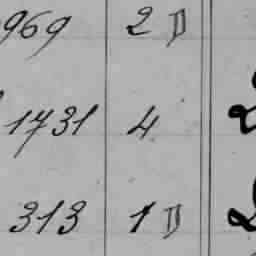 969 2 D
1731 4
313 1 D